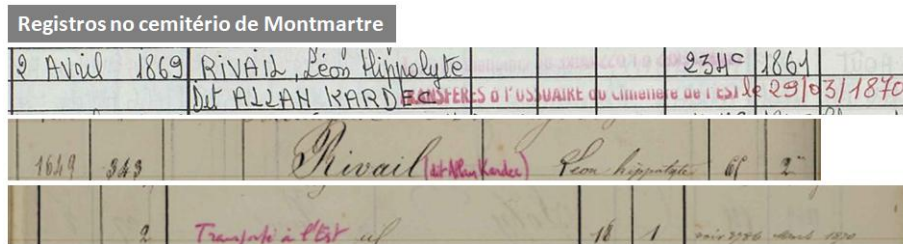 Registros no cemitério de Montmartre
2 Avril 1869 RIVAIL, Léon Hippolyte 234C 1861
Dit ALLAN KARDEC TRANSFÉRÉS à l'OSSUAIRE du Cimetière de l'EST le 29/03/1870
1649 343 Rivail (dit Allan Kardec) Léon hippolyte 65 2
2 Transporté à l'Est 18 1 1870